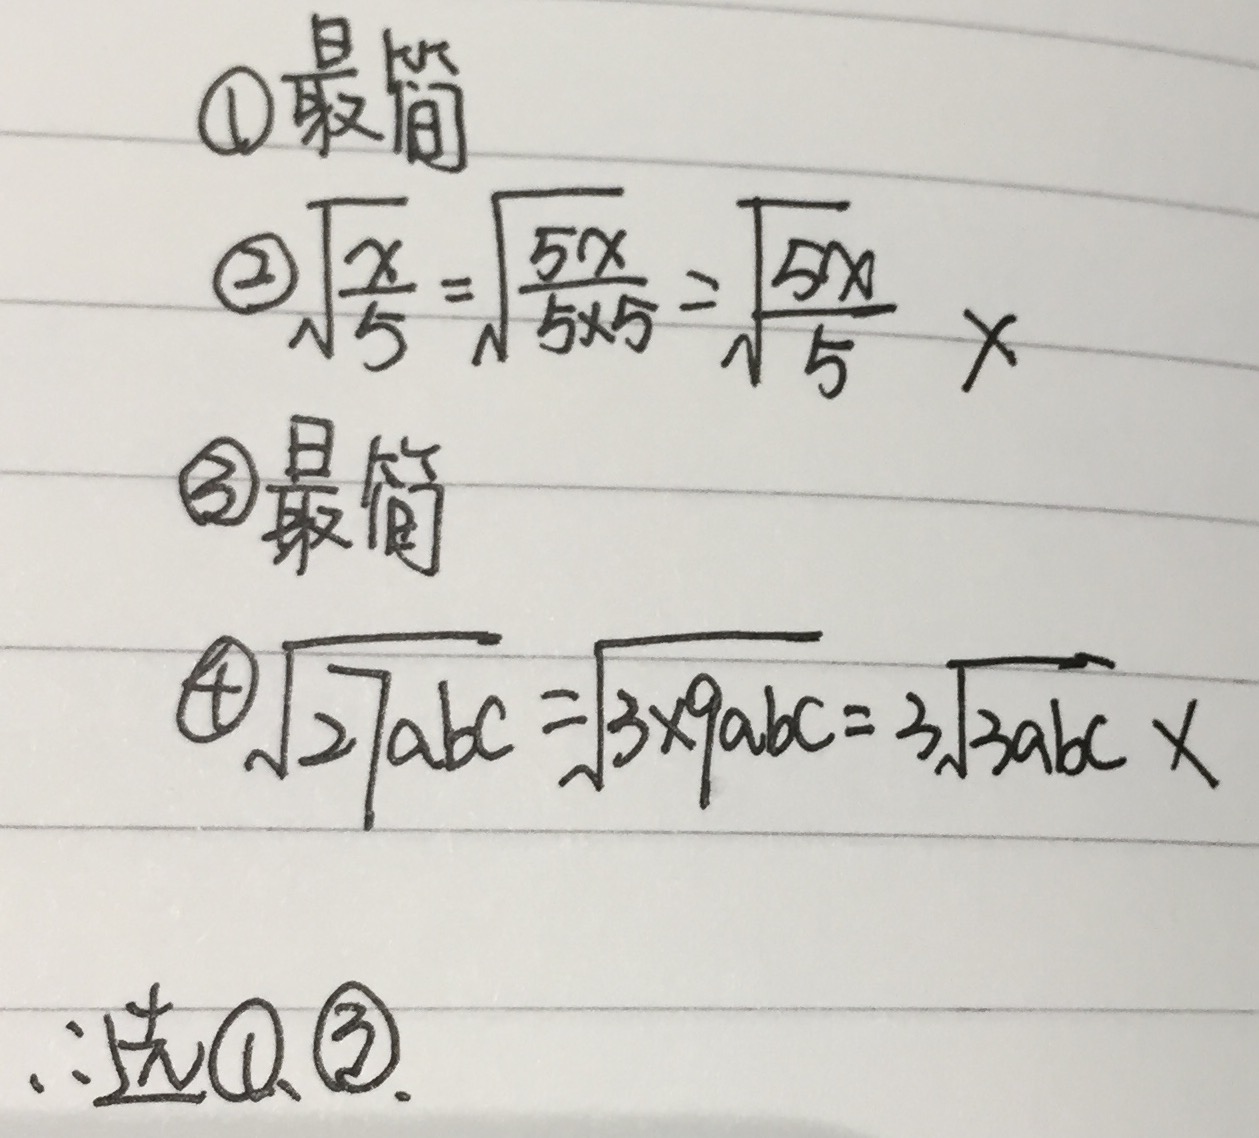 ①最简
②√(x/5) = √(5x/(5×5)) = √(5x)/5 ×
③最简
④√(27abc) = √(3×9abc) = 3√(3abc) ×
∴选①、③.